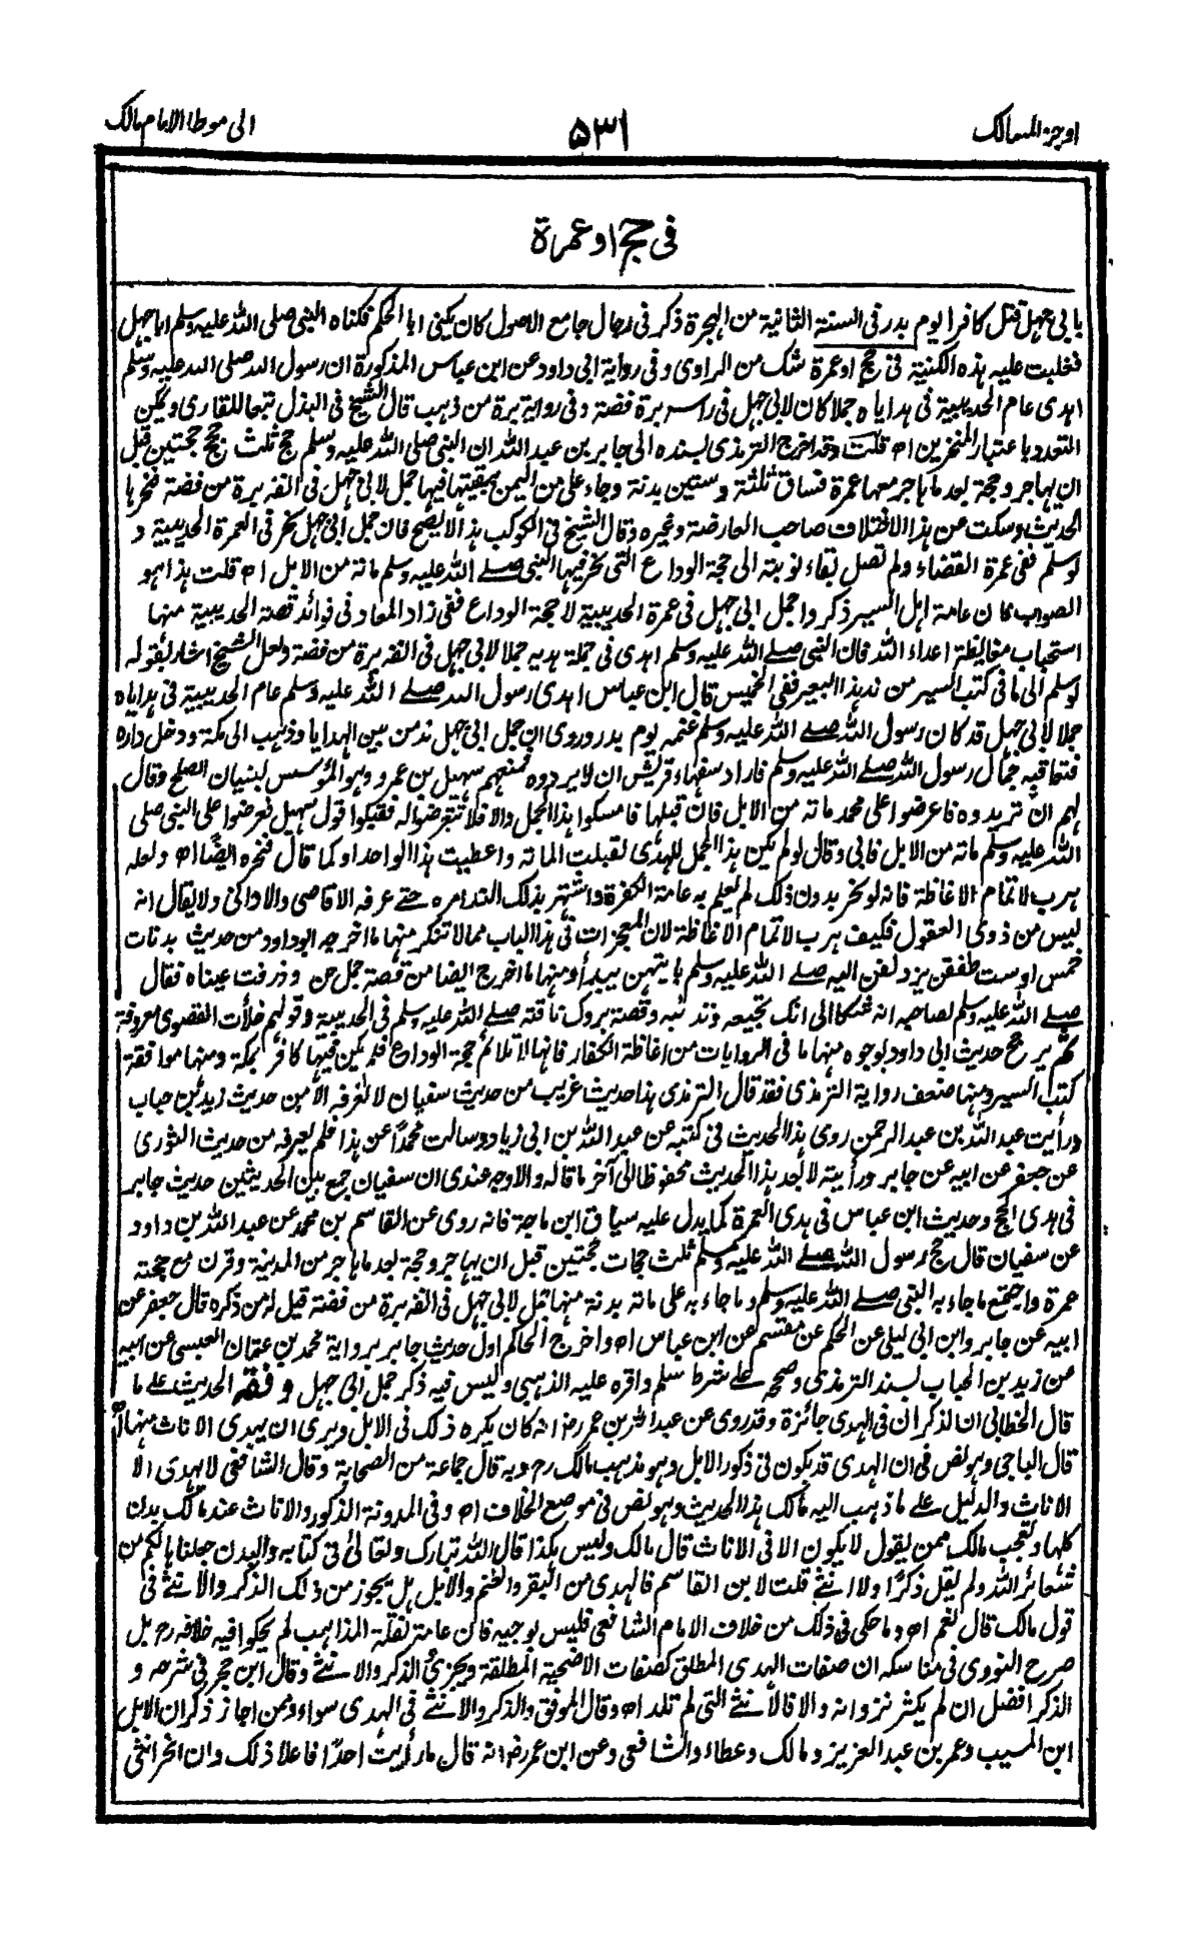 اوجز المسالك ٥٣١ الى موطا الامام مالك
فى حج او عمرة
بابى جهل قتل كافرا يوم بدر فى السنة الثانية من الهجرة ذكر فى رجال جامع الاصول كان يكنى ابا الحكم فكناه النبى صلى الله عليه وسلم ابا جهل
فغلبت عليه هذه الكنية فى حج او عمرة شك من الراوى وفى رواية ابى داود عن ابن عباس المذكورة ان رسول الله صلى الله عليه وسلم
اهدى عام الحديبية فى هداياه جملا كان لابى جهل فى راسه برة فضة وفى رواية برة من ذهب قال الشيخ فى البذل تبعا للقارى ويمكن
التعدد باعتبار المنخرين اه قلت وقد اخرج الترمذى بسنده الى جابر بن عبد الله ان النبى صلى الله عليه وسلم حج ثلث حجج حجتين قبل
ان يهاجر وحجة بعد ما هاجر معها عمرة فساق ثلثة وستين بدنة وجاء على من اليمن ببقيتها فيها جمل لابى جهل فى انفه برة من فضة فنحرها
الحديث وسكت عن هذا الاختلاف صاحب العارضة وغيره وقال الشيخ فى الكوكب هذا لا يصح فان جمل ابى جهل نحر فى العمرة الحديبية و
لو سلم ففى عمرة القضاء ولم تصل بقاء نوبته الى حجة الوداع التى نحر فيها النبى صلى الله عليه وسلم مائة من الابل اه قلت هذا هو
الصواب كان عامة اهل السير ذكروا جمل ابى جهل فى عمرة الحديبية لا حجة الوداع ففى زاد المعاد فى فوائد قصة الحديبية منها
استحباب مغايظة اعداء الله فان النبى صلى الله عليه وسلم اهدى فى جملة هديه جملا لابى جهل فى انفه برة من فضة ولعل الشيخ اشار بقوله
لو سلم الى ما فى كتب السير من ند هذا البعير ففى الخميس قال ابن عباس اهدى رسول الله صلى الله عليه وسلم عام الحديبية فى هداياه
جملا لابى جهل قد كان رسول الله صلى الله عليه وسلم غنمه يوم بدر وروى ان جمل ابى جهل ند من بين الهدايا وذهب الى مكة ودخل داره
فتعاقبه جمال رسول الله صلى الله عليه وسلم فاراد سفهاء قريش ان لا يردوه فمنعهم سهيل بن عمرو وهو المؤسس لبنيان الصلح وقال
لهم ان تريدوه فاعرضوا على محمد مائة من الابل فان قبلها فامسكوا هذا الجمل والا فلا تتعرضوا له فقبلوا قول سهيل فعرضوا على النبى صلى
الله عليه وسلم مائة من الابل فابى وقال لو لم يكن هذا الجمل للهدى لقبلت المائة واعطيت هذا الواحد او كما قال فنحره ايضا اه ولعله
هرب لاتمام الاغاظة فانه لو نحر بدون ذلك لم يعلم به عامة الكفرة واشتهر بذلك الند امره حتى عرفه الاقاصى والادانى ولا يقال انه
ليس من ذوى العقول فكيف هرب لاتمام الاغاظة لان المعجزات فى هذا الباب مما لا تنكر منها ما اخرجه ابو داود من حديث بدنات
خمس او ست طفقن يزدلفن اليه صلى الله عليه وسلم بايتهن يبدأ ومنها ما اخرج ايضا من قصة جمل حن وذرفت عيناه فقال
صلى الله عليه وسلم لصاحبه انه شكا الى انك تجيعه وتدئبه وقصة بروك ناقته صلى الله عليه وسلم فى الحديبية وقولهم خلأت القصوى معروفة
ثم يرجح حديث ابى داود بوجوه منها ما فى الروايات من اغاظة الكفار فانها لا تلائم حجة الوداع فلم يكن فيها كافر بمكة ومنها موافقة
كتب السير ومنها ضعف رواية الترمذى فقد قال الترمذى هذا حديث غريب من حديث سفيان لا نعرفه الا من حديث زيد بن حباب
ورأيت عبد الله بن عبد الرحمن روى هذا الحديث فى كتبه عن عبد الله بن ابى زياد وسالت محمدا عن هذا فلم يعرفه من حديث الثورى
عن جعفر عن ابيه عن جابر ورأيته لا يعد هذا الحديث محفوظا الى آخر ما قاله والاوجه عندى ان سفيان جمع بين الحديثين حديث جابر
فى هدى الحج وحديث ابن عباس فى هدى العمرة كما يدل عليه سياق ابن ماجة فانه روى عن القاسم بن محمد عن عبد الله بن داود
عن سفيان قال حج رسول الله صلى الله عليه وسلم ثلث حجات حجتين قبل ان يهاجر وحجة بعد ما هاجر من المدينة وقرن مع حجته
عمرة واجتمع ما جاء به النبى صلى الله عليه وسلم وما جاء به على مائة بدنة منها جمل لابى جهل فى انفه برة من فضة قيل له من ذكره قال جعفر عن
ابيه عن جابر وابن ابى ليلى عن الحكم عن مقسم عن ابن عباس اه واخرج الحاكم اول حديث جابر برواية محمد بن عقان العبسى عن ابيه
عن زيد بن الحباب بسند الترمذى وصححه على شرط مسلم واقره عليه الذهبى وليس فيه ذكر جمل ابى جهل وفقه الحديث على ما
قال الخطابى ان الذكران فى الهدى جائزة وقد روى عن عبد الله بن عمر رض انه كان يكره ذلك فى الابل ويرى ان يهدى الاناث منها اه
قال الباجى وهو نص فى ان الهدى قد يكون فى ذكور الابل وهو مذهب مالك رح وبه قال جماعة من الصحابة وقال الشافعى لا يهدى الا
الاناث والدليل على ما ذهب اليه مالك هذا الحديث وهو نص فى موضع الخلاف اه وفى المدونة الذكور والاناث عند مالك بدن
كلها وتعجب مالك ممن يقول لا يكون الا فى الاناث قال مالك وليس هكذا قال الله تبارك وتعالى فى كتابه والبدن جعلناها لكم من
شعائر الله ولم يقل ذكرا ولا انثى قلت لابن القاسم فالهدى من البقر والغنم والابل هل يجوز من ذلك الذكر والانثى فى
قول مالك قال نعم اه وما حكى فى ذلك من خلاف الامام الشافعى فليس بوجيه فان عامة نقلة المذاهب لم يحكوا فيه خلافه رح بل
صرح النووى فى مناسكه ان صفات الهدى المطلق كصفات الاضحية المطلقة ويجزئ الذكر والانثى وقال ابن حجر فى شرحه و
الذكر افضل ان لم يكثر نزوانه والا فالانثى التى لم تلد اه وقال الموفق والذكر والانثى فى الهدى سواء وممن اجاز ذكران الابل
ابن المسيب وعمر بن عبد العزيز ومالك وعطاء والشافعى وعن ابن عمر رض انه قال ما رأيت احدا فاعلا ذلك وان انحر انثى